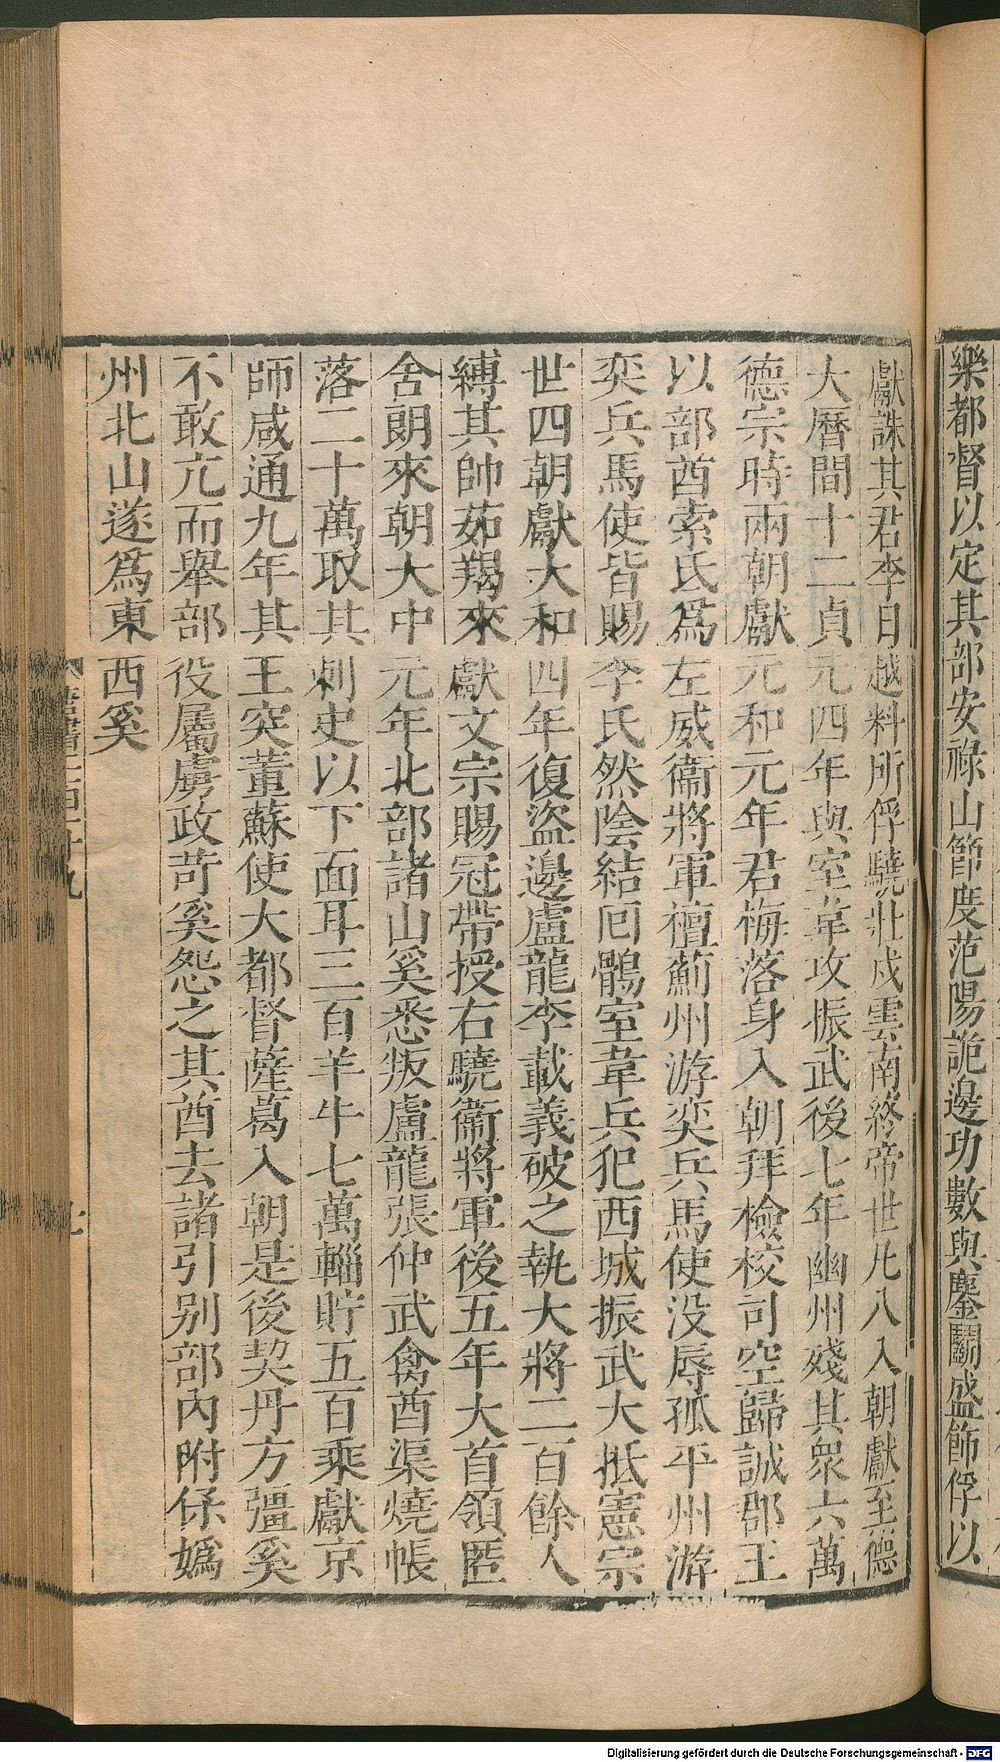 樂都督以定其部安祿山節度范陽詭邊功數與鏖鬭盛飾俘以
獻誅其君李日越料所俘驍壯戍雲南終帝世凡八入朝獻至德
大曆間十二貞元四年與室韋攻振武後七年幽州殘其衆六萬
德宗時兩朝獻元和元年君梅落身入朝拜檢校司空歸誠郡王
以部酋索氏爲左威衞將軍檀薊州游奕兵馬使没辱孤平州游
奕兵馬使皆賜李氏然陰結囘鶻室韋兵犯西城振武大抵憲宗
世四朝獻大和四年復盜邊盧龍李載義破之執大將二百餘人
縛其帥茹羯來獻文宗賜冠帶授右驍衞將軍後五年大首領匿
舍朗來朝大中元年北部諸山奚悉叛盧龍張仲武禽酋渠燒帳
落二十萬取其刺史以下面耳三百羊牛七萬輜貯五百乘獻京
師咸通九年其王突董蘇使大都督薩葛入朝是後契丹方彊奚
不敢亢而舉部役屬虜政苛奚怨之其酋去諸引别部內附保媯
州北山遂爲東西奚
唐書二百十九
Digitalisierung gefördert durch die Deutsche Forschungsgemeinschaft - DFG